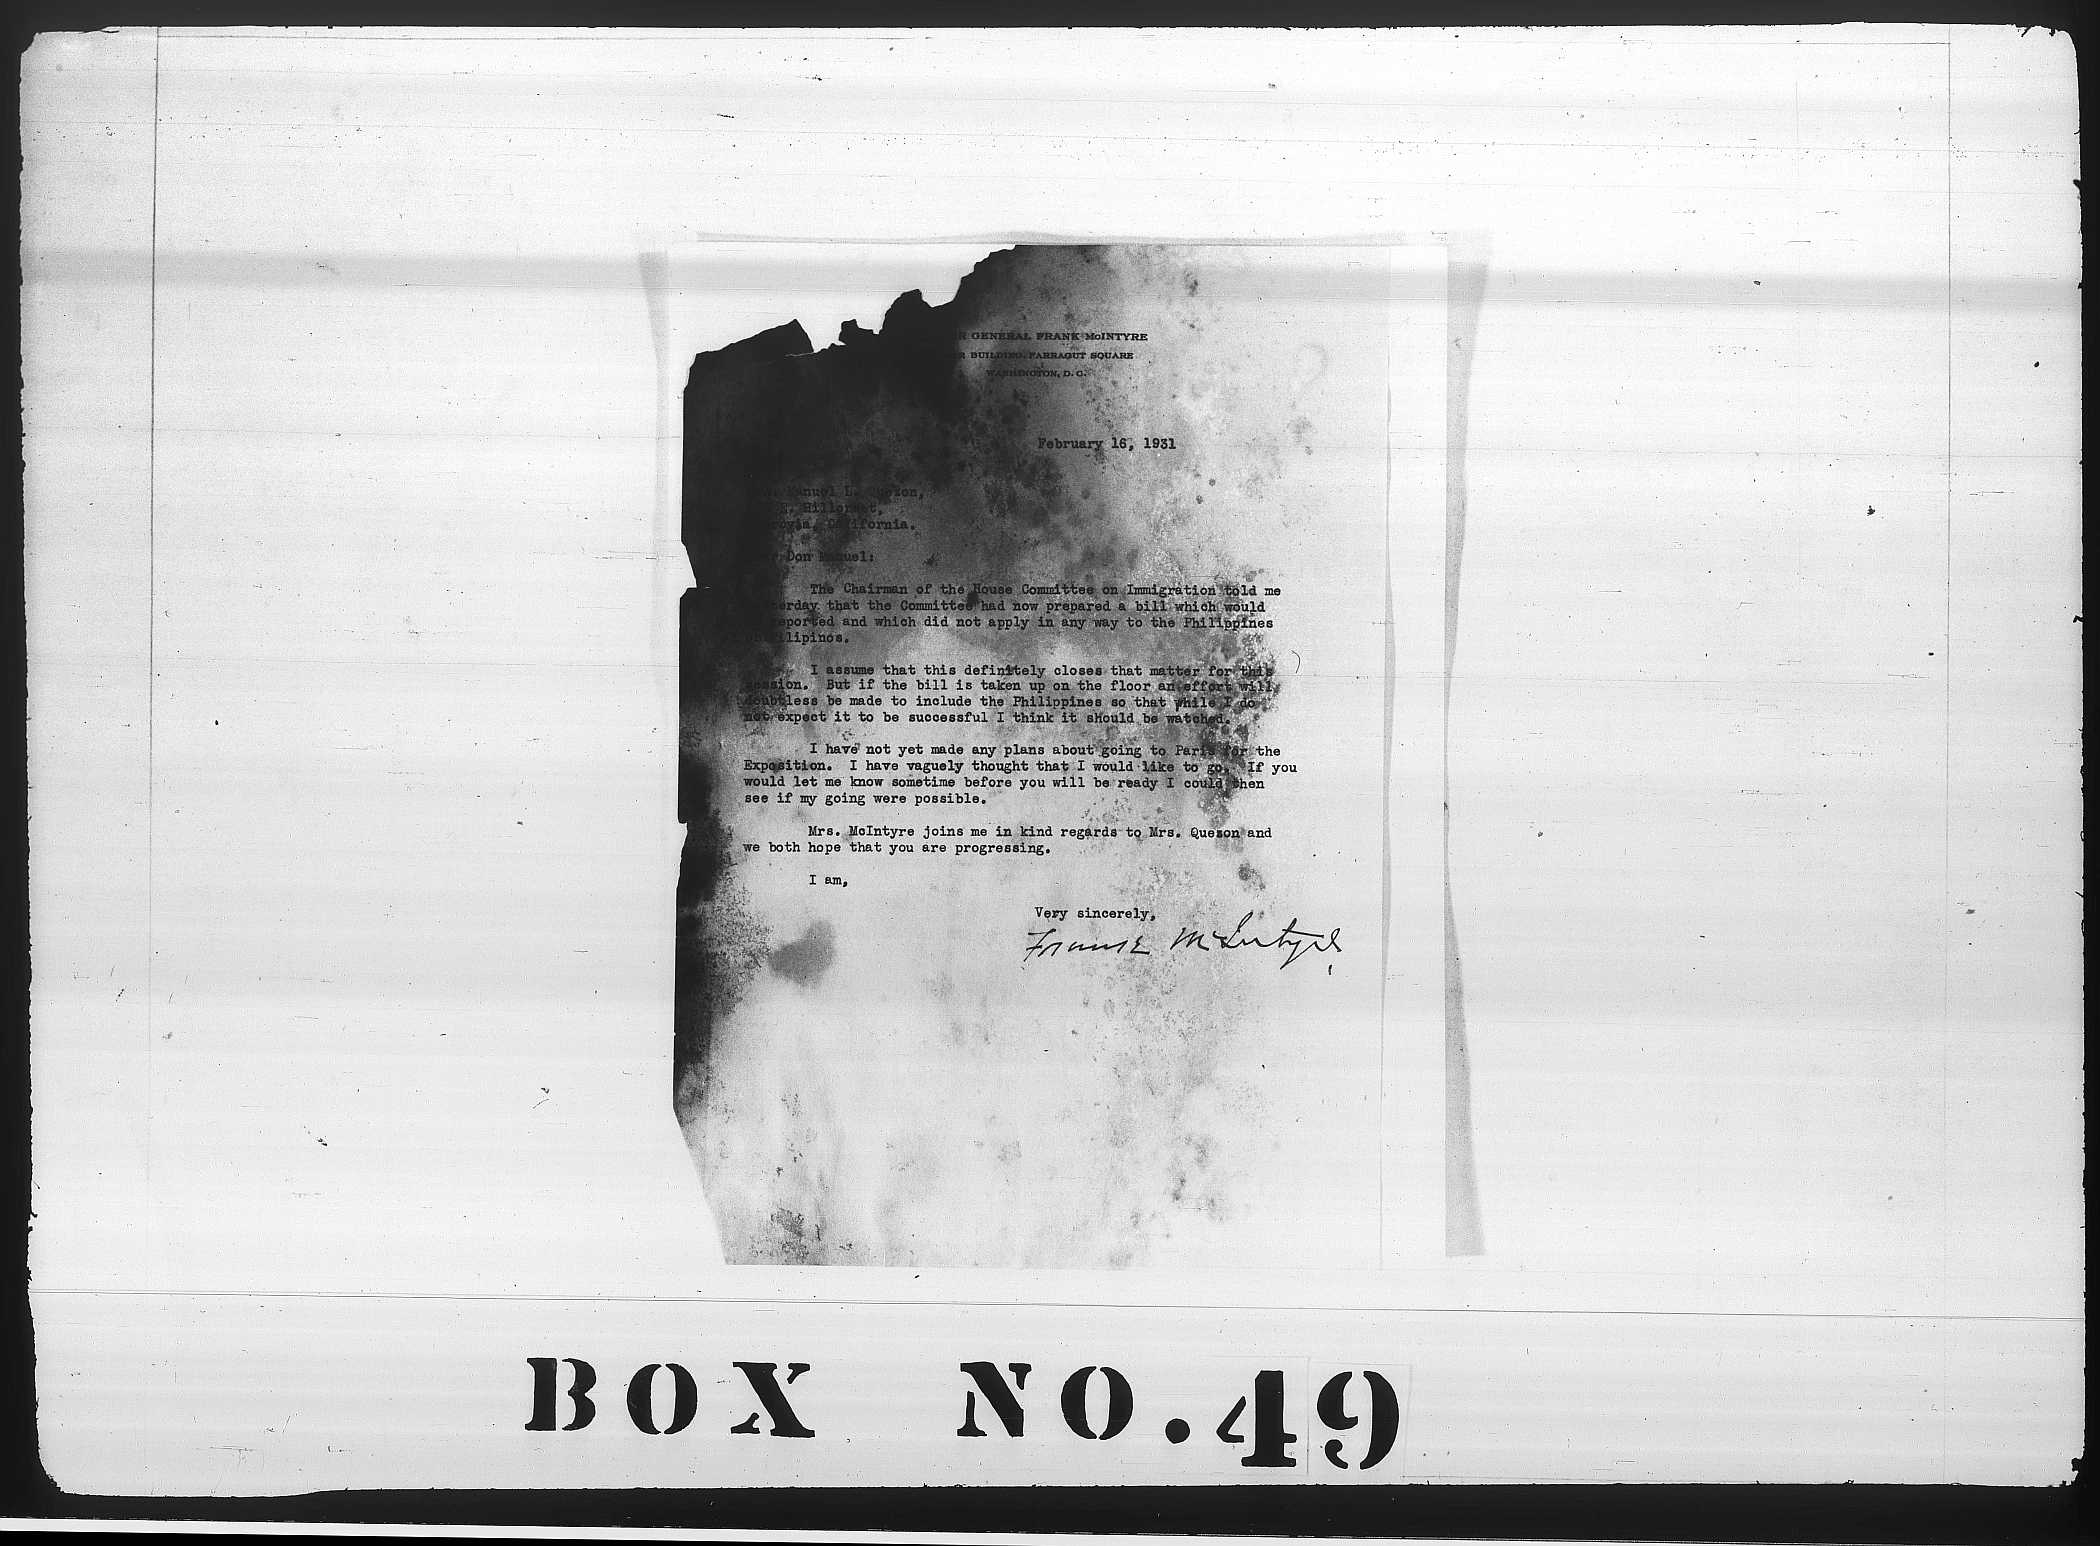 GENERAL FRANK McINTYRE
BUILDING, FARRAGUT SQUARE
WASHINGTON, D. C.
February 16, 1931
Manuel L. Quezon,
Hillcrest,
California.
Don Manuel:
The Chairman of the House Committee on Immigration told me
that the Committee had now prepared a bill which would
reported and which did not apply in any way to the Philippines
Filipinos.
I assume that this definitely closes that matter for this
session. But if the bill is taken up on the floor an effort will
doubtless be made to include the Philippines so that while I do
not expect it to be successful I think it should be watched.
I have not yet made any plans about going to Paris for the
Exposition. I have vaguely thought that I would like to go. If you
would let me know sometime before you will be ready I could then
see if my going were possible.
Mrs. McIntyre joins me in kind regards to Mrs. Quezon and
we both hope that you are progressing.
I am,
Very sincerely,
Frank McIntyre
BOX NO. 49